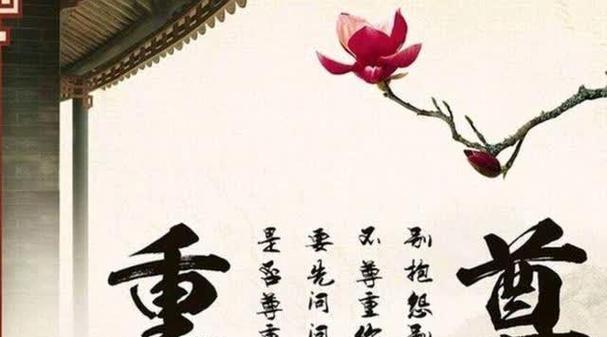 尊
别抱怨别
不尊重你
要先问问
是否尊重
重